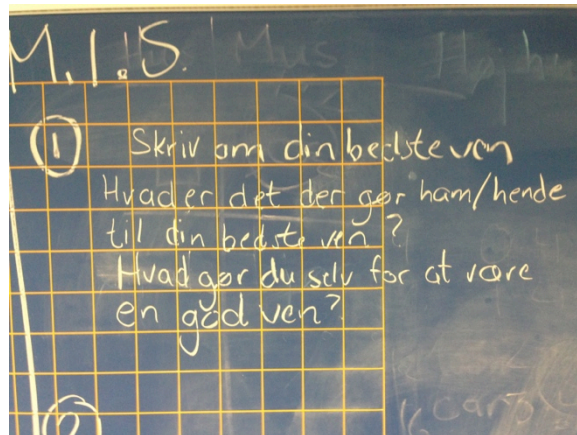 M.I.S.
1 Skriv om din bedste ven
Hvad er det der gør ham/hende
til din bedste ven?
Hvad gør du selv for at være
en god ven?
2